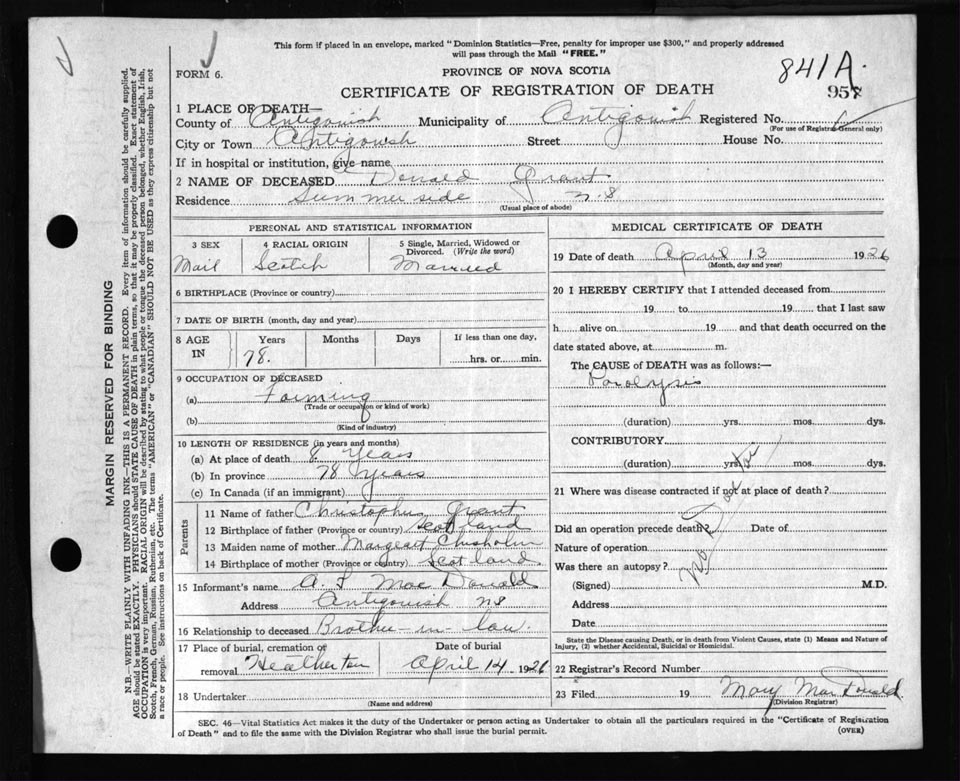 This form if placed in an envelope, marked "Dominion Statistics—Free, penalty for improper use $300," and properly addressed
will pass through the Mail "FREE."
FORM 6.
PROVINCE OF NOVA SCOTIA
841A.
CERTIFICATE OF REGISTRATION OF DEATH
957
1 PLACE OF DEATH—
County of Antigonish Municipality of Antigonish Registered No.
(For use of Registrar General only)
City or Town Antigonish Street House No.
If in hospital or institution, give name
2 NAME OF DECEASED Donald Grant
Residence Summerside N.S
(Usual place of abode)
PERSONAL AND STATISTICAL INFORMATION
3 SEX 4 RACIAL ORIGIN 5 Single, Married, Widowed or Divorced. (Write the word)
Mail Scotch Married
6 BIRTHPLACE (Province or country)
7 DATE OF BIRTH (month, day and year)
8 AGE IN Years Months Days If less than one day,
78. hrs. or min.
9 OCCUPATION OF DECEASED
(a) Farming
(Trade or occupation or kind of work)
(b)
(Kind of industry)
10 LENGTH OF RESIDENCE (in years and months)
(a) At place of death 8 Years
(b) In province 78 years
(c) In Canada (if an immigrant)
Parents
11 Name of father Christopher Grant
12 Birthplace of father (Province or country) Scotland
13 Maiden name of mother Margeart Chisholm
14 Birthplace of mother (Province or country) Scotland.
15 Informant's name A. MacDonald
Address Antigonish NS
16 Relationship to deceased Brother-in-law.
17 Place of burial, cremation or removal Heatherton Date of burial April 14 1926
18 Undertaker
(Name and address)
MEDICAL CERTIFICATE OF DEATH
19 Date of death April 13 1926
(Month, day and year)
20 I HEREBY CERTIFY that I attended deceased from
19 to 19 that I last saw
h alive on 19 and that death occurred on the
date stated above, at m.
The CAUSE of DEATH was as follows:—
Paralysis
(duration) yrs. mos. dys.
CONTRIBUTORY
(duration) yrs. mos. dys.
21 Where was disease contracted if not at place of death?
Did an operation precede death? Date of
Nature of operation
Was there an autopsy?
No Doctor
(Signed) M.D.
Address
Date
State the Disease causing Death, or in death from Violent Causes, state (1) Means and Nature of
Injury, (2) whether Accidental, Suicidal or Homicidal.
22 Registrar's Record Number
23 Filed 19 Mary MacDonald
(Division Registrar)
SEC. 46—Vital Statistics Act makes it the duty of the Undertaker or person acting as Undertaker to obtain all the particulars required in the "Certificate of Registration
of Death" and to file the same with the Division Registrar who shall issue the burial permit.
(OVER)
MARGIN RESERVED FOR BINDING
N.B.—WRITE PLAINLY WITH UNFADING INK—THIS IS A PERMANENT RECORD. Every item of information should be carefully supplied.
AGE should be stated EXACTLY. PHYSICIANS should STATE CAUSE OF DEATH in plain terms, so that it may be properly classified. Exact statement of
OCCUPATION is very important. RACIAL ORIGIN will be described by stating to what people or tongue the deceased person belonged, whether English, Irish,
Scotch, French, German, Russian, Ruthenian, etc. The terms "AMERICAN" or "CANADIAN" SHOULD NOT BE USED as they express citizenship but not
a race or people. See instructions on back of Certificate.